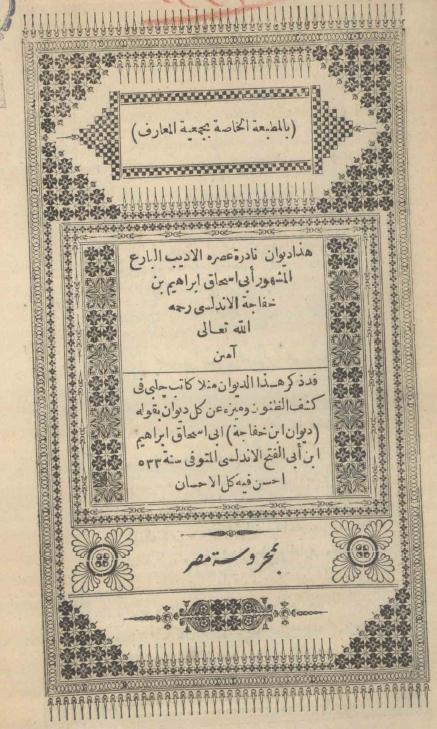 (بالمطبعة الخاصة بجمعية المعارف)
هذا ديوان نادرة عصره الاديب البارع
المشهور أبى اسحاق ابراهيم بن
خفاجة الاندلسى رحمه
الله تعالى
آمين
قد ذكر هذا الديوان منلا كاتب چلبى فى
كشف الظنون وميزه عن كل ديوان بقوله
(ديوان ابن خفاجة) ابى اسحاق ابراهيم
ابن أبى الفتح الاندلسى المتوفى سنة ٥٣٣
احسن فيه كل الاحسان
بمحروسة مصر